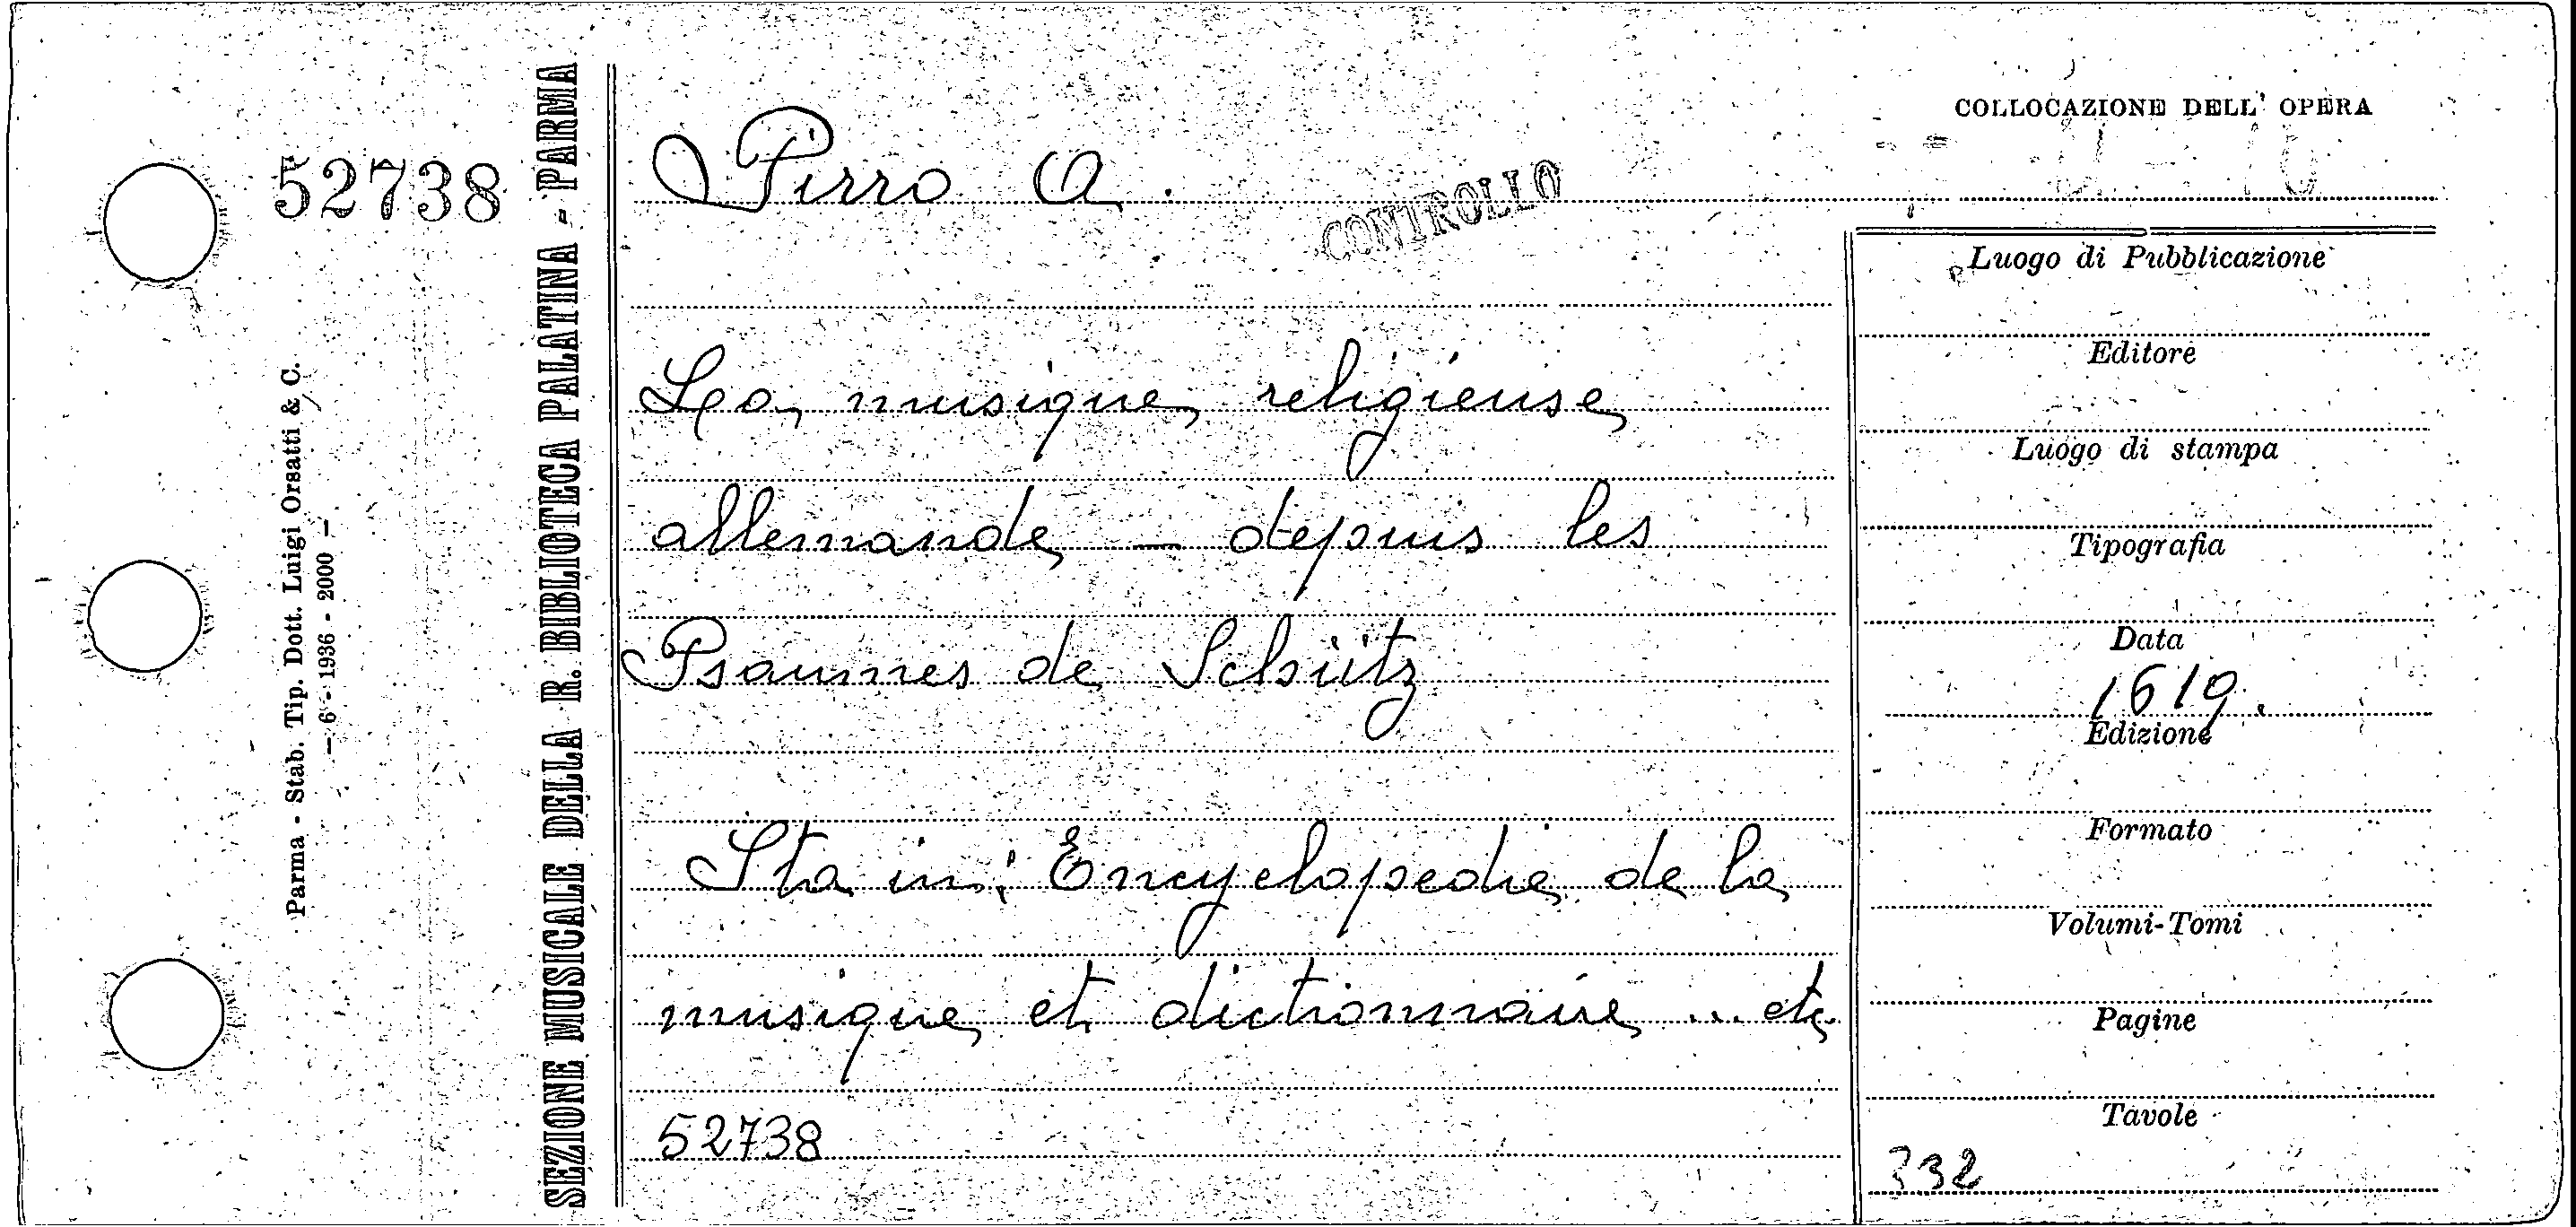 52738
Parma - Stab. Tip. Dott. Luigi Orsati & C.
— 6 - 1936 - 2000 —
SEZIONE MUSICALE DELLA R. BIBLIOTECA PALATINA - PARMA
Pirro A.
CONTROLLO
La musique religieuse
allemande — depuis les
Psaumes de Schütz
Sta in: Encyclopedie de la
musique et dictionnaire ... etc
52738
COLLOCAZIONE DELL' OPERA
Luogo di Pubblicazione
Editore
Luogo di stampa
Tipografia
Data
1619.
Edizione
Formato
Volumi-Tomi
Pagine
Tavole
332